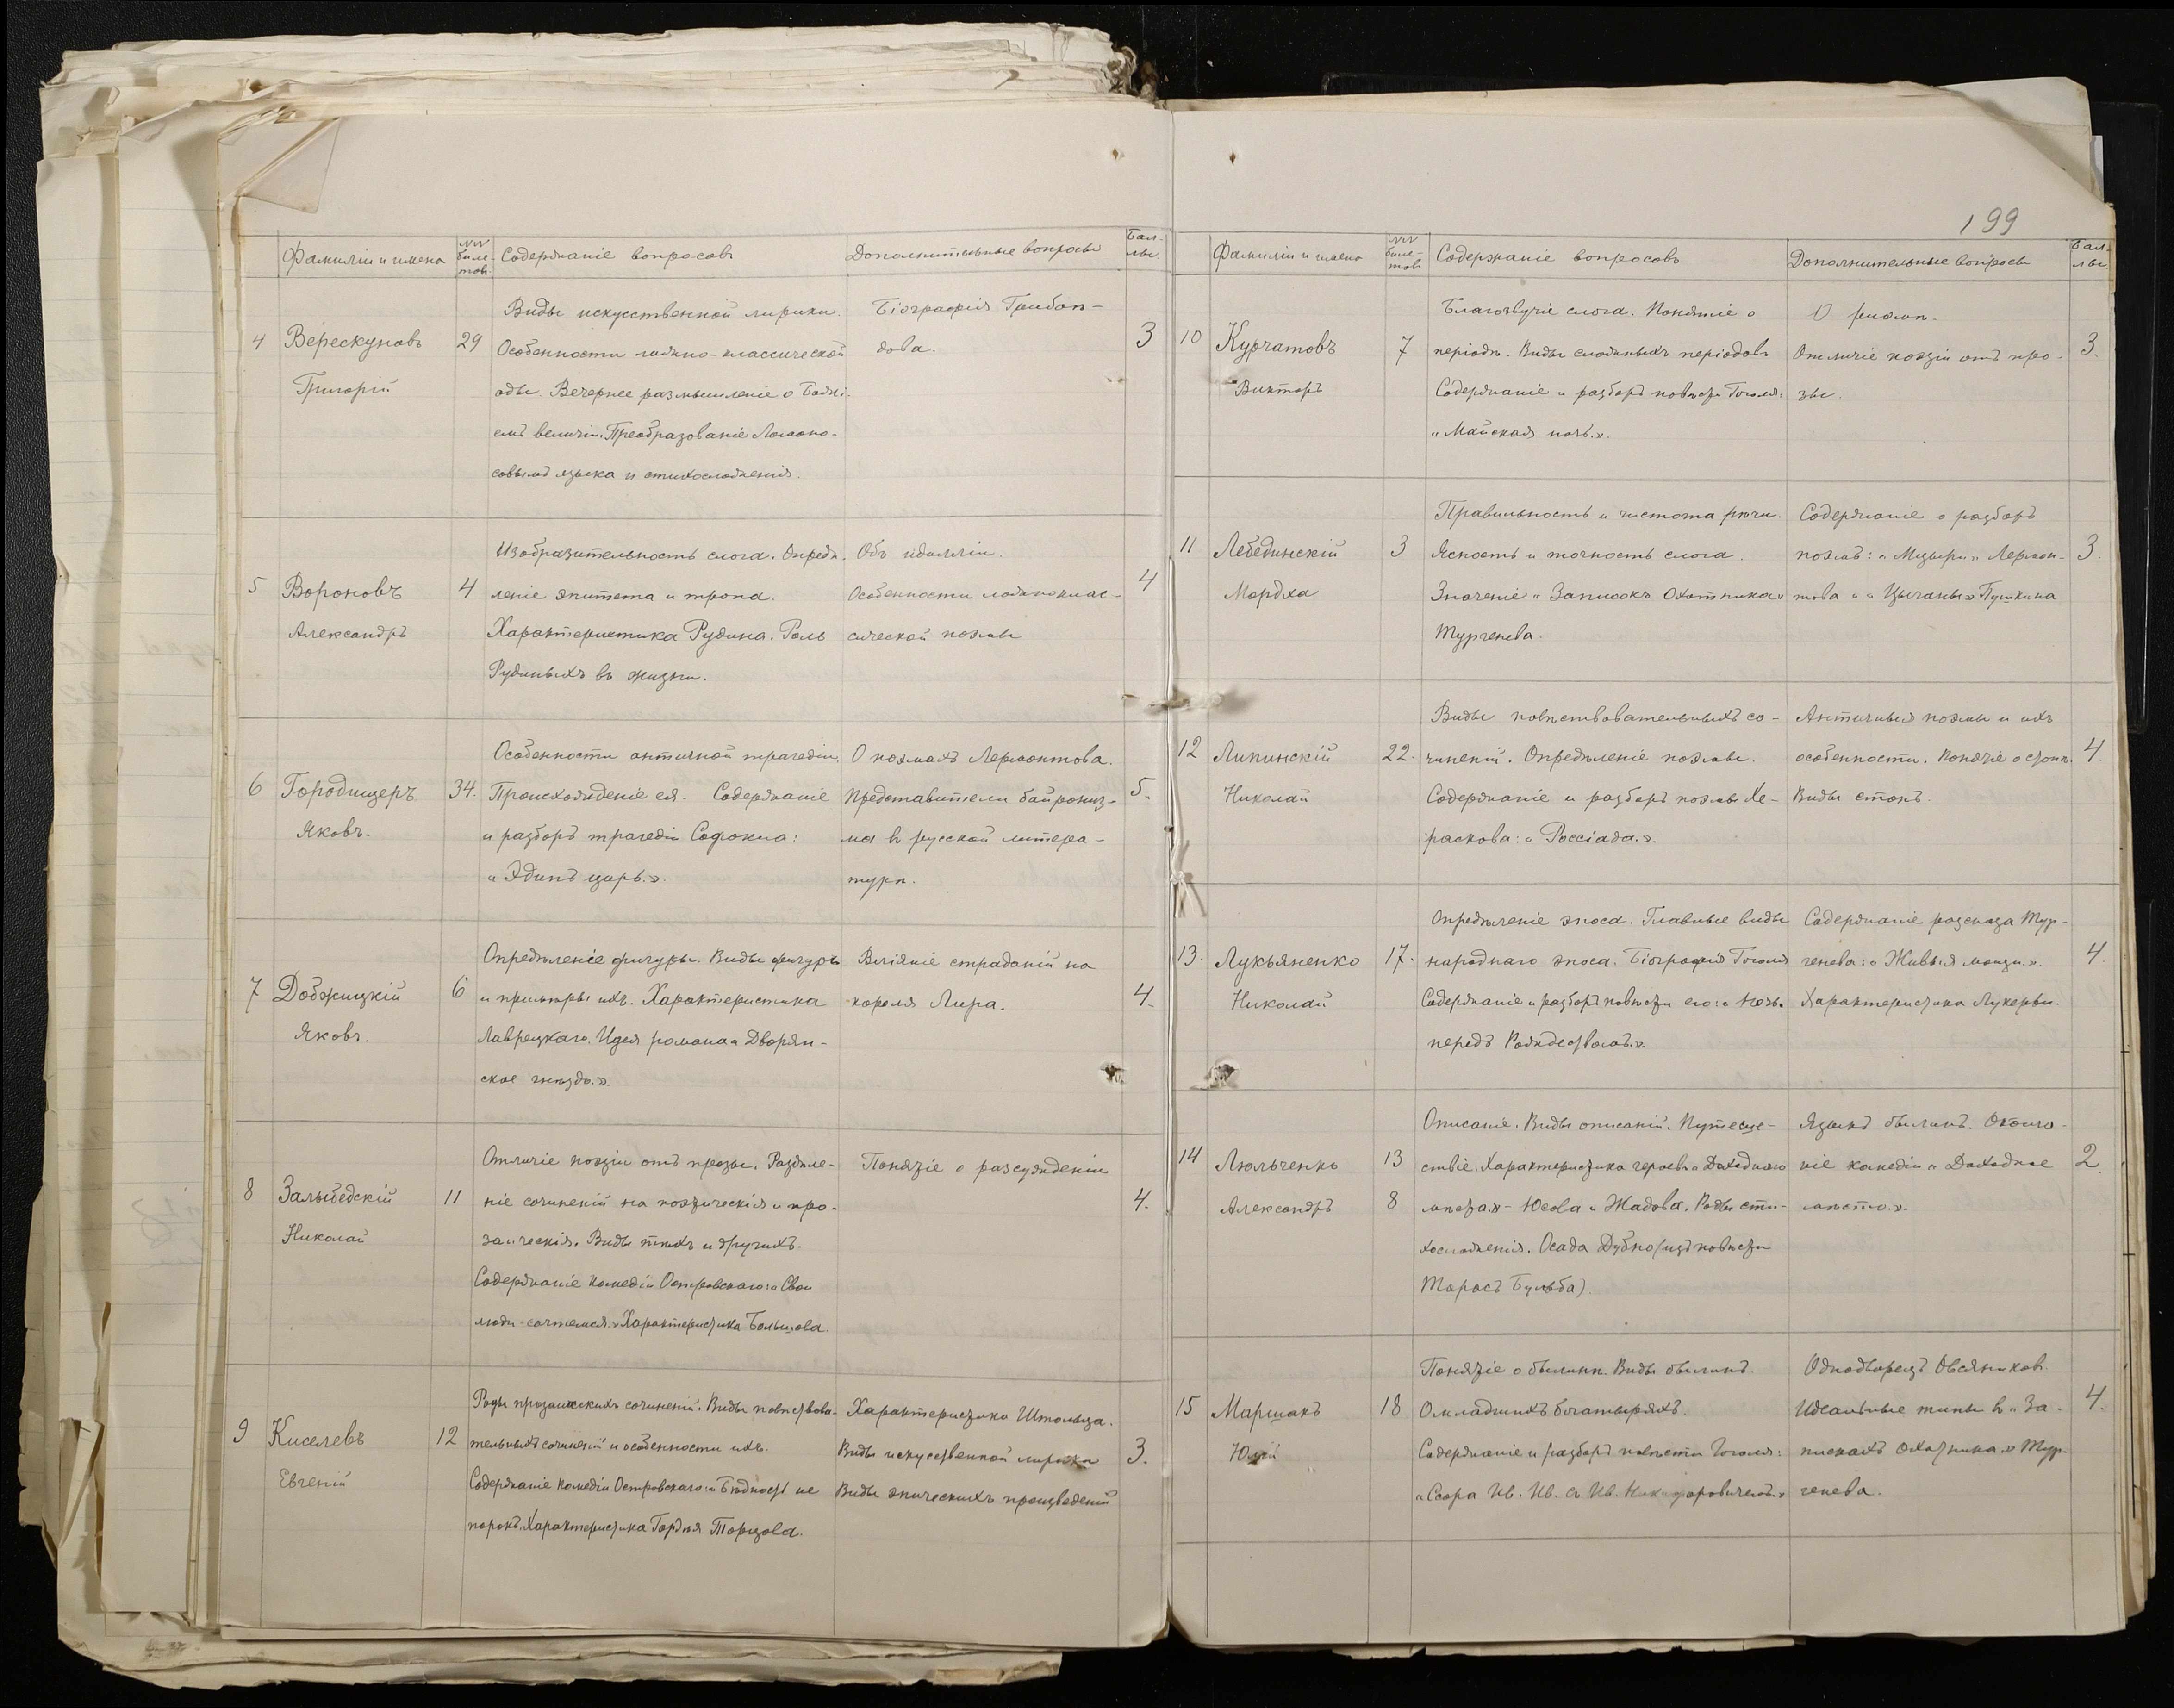 Фамиліи и имена
№№ биле-товъ
Содержаніе вопросовъ
Дополнительные вопросы
Бал-лы.
4
Верескуновъ
Григорій
29
Виды искусственной лирики.
Особенности ложно-классической
оды. Вечернее размышленіе о Божі-
емъ величіи. Преобразованіе Ломоно-
совымъ языка и стихосложенія.
Біографія Грибоѣ-
дова.
3
5
Вороновъ
Александръ
4
Изобразительность слога. Опредѣ-
леніе эпитета и тропа.
Характеристика Рудина. Роль
Рудиныхъ въ жизни.
Объ идилліи.
Особенности ложноклас-
сической поэмы
4
6
Городищеръ
Яковъ.
34.
Особенности античной трагедіи.
Происхожденіе ея. Содержаніе
и разборъ трагедіи Софокла:
"Эдипъ царь."
О поэмахъ Лермонтова.
Представители байрониз-
ма въ русской литера-
турѣ.
5.
7
Добжицкій
Яковъ.
6
Опредѣленіе фигуры. Виды фигуръ
и примѣры ихъ. Характеристика
Лаврецкаго. Идея романа "Дворян-
ское гнѣздо."
Вліяніе страданій на
короля Лира.
4.
8
Залыбедскій
Николай
11
Отличіе поэзіи отъ прозы. Раздѣле-
ніе сочиненій на поэтическія и про-
заическія. Виды тѣхъ и другихъ.
Содержаніе комедіи Островскаго: "Свои
люди-сочтемся." Характеристика Большова.
Понятіе о разсужденіи
4.
9
Киселевъ
Евгеній
12
Роды прозаическихъ сочиненій. Виды повѣствова-
тельныхъ сочиненій и особенности ихъ.
Содержаніе комедіи Островскаго: "Бѣдность не
порокъ. Характеристика Гордѣя Торцова.
Характеристика Штольца.
Виды искусственной лирики
Виды эпическихъ произведеній
3.
199
Фамиліи и имена
№№ биле-товъ
Содержаніе вопросовъ
Дополнительные вопросы
Бал-лы
10
Курчатовъ
Викторъ
7
Благозвучіе слога. Понятіе о
періодѣ. Виды сложныхъ періодовъ
Содержаніе и разборъ повѣсти Гоголя:
"Майская ночь."
О риѳмѣ.
Отличіе поэзіи отъ про-
зы.
3.
11
Лебединскій
Мордха
3
Правильность и чистота рѣчи.
Ясность и точность слога.
Значеніе "Записокъ Охотника"
Тургенева.
Содержаніе и разборъ
поэмъ: "Мцыри" Лермон-
това и "Цыганы" Пушкина
3.
12
Липинскій
Николай
22.
Виды повѣствовательныхъ со-
чиненій. Опредѣленіе поэмы.
Содержаніе и разборъ поэмы Хе-
раскова: "Россіада."
Античныя поэмы и ихъ
особенности. Понятіе о стопѣ.
Виды стопъ.
4.
13.
Лукьяненко
Николай
17.
Опредѣленіе эпоса. Главные виды
народнаго эпоса. Біографія Гоголя
Содержаніе и разборъ повѣсти его: "Ночь
передъ Рождествомъ."
Содержаніе разсказа Тур-
генева: "Живыя мощи."
Характеристика Лукерьи.
4.
14
Люльченко
Александръ
13
8
Описаніе. Виды описаній. Путеше-
ствіе. Характеристика героевъ "Доходнаго
мѣста." - Юсова и Жадова. Роды сти-
хосложенія. Осада Дубно (изъ повѣсти
Тарасъ Бульба).
Языкъ былинъ. Оконча-
ніе комедіи "Доходное
мѣсто."
2.
15
Маршакъ
18
Понятіе о былинѣ. Виды былинъ
О младшихъ богатыряхъ.
Содержаніе и разборъ повѣсти Гоголя:
"Ссора Ив. Ив. съ Ив. Никифоровичемъ."
Однодворецъ Овсяниковъ.
Идеальные типы въ "За-
пискахъ Охотника." Тур-
генева.
4.